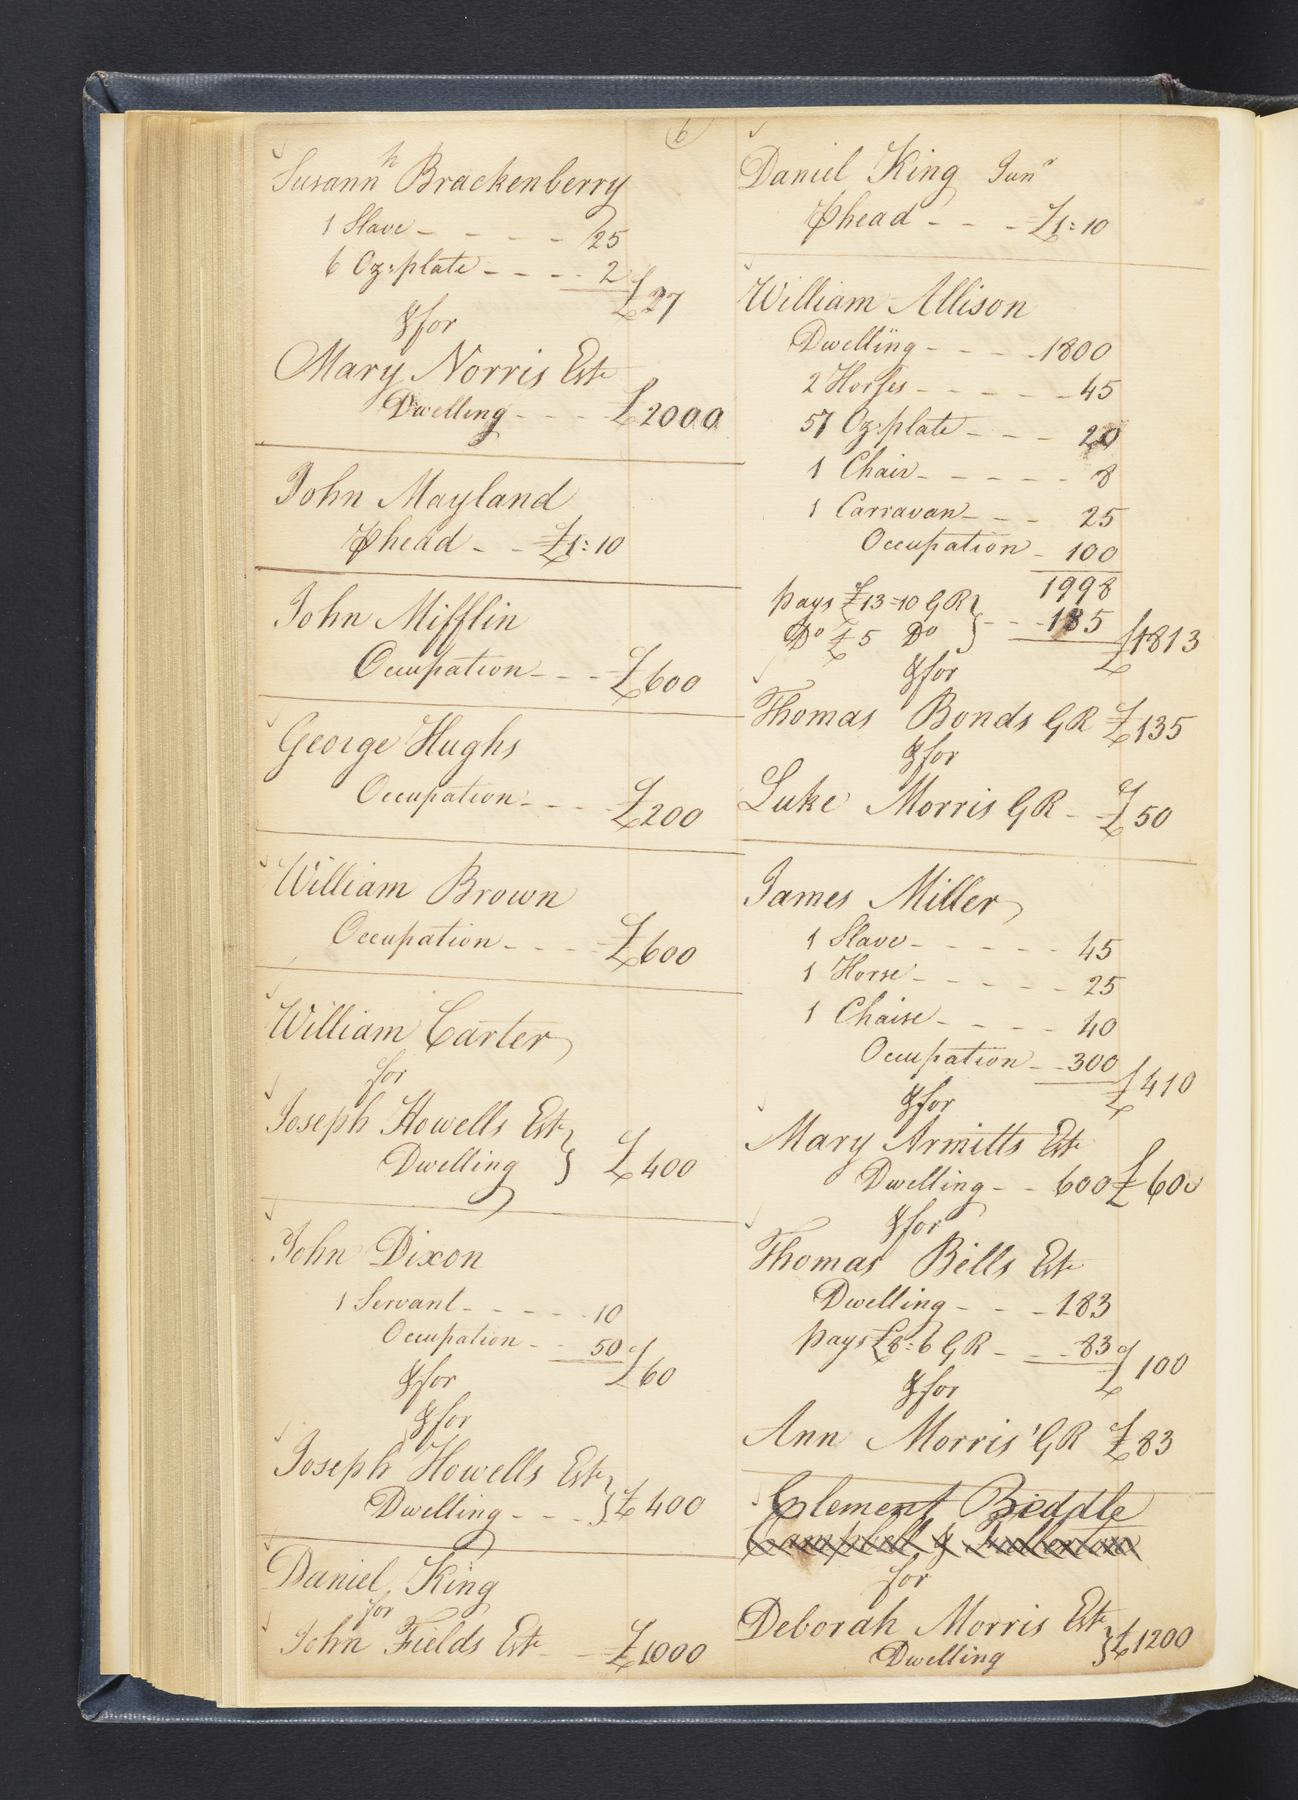 6
Susannh Brackenberry
1 Slave - - - - - 25
6 Oz: plate - - - - 2
£27
&for
Mary Norris Este
Dwelling - - - £2000
John Mayland
⅌head - - £1:10
John Mifflin
Occupation - - - £600
George Hughs
Occupation - - - £200
William Brown
Occupation - - - £600
William Carter
for
Joseph Howells Este
Dwelling } £400
John Dixon
1 Servant - - - - - 10
Occupation - - 50
£60
&for
&for
Joseph Howells Este
Dwelling - - - } £400
Daniel King
for
John Fields Este - - £1000
Daniel King Junr
⅌head - - - £1:10
William Allison
Dwelling - - - - 1800
2 Horses - - - - - 45
57 Oz: plate - - - 20
1 Chair - - - - - - 8
1 Carravan - - - 25
Occupation - 100
1998
pays £13-10 GR }
Do £5 Do } - - - 185 £1813
&for
Thomas Bonds GR £135
&for
Luke Morris GR - £50
James Miller
1 Slave - - - - - 45
1 Horse - - - - - 25
1 Chaise - - - - 40
Occupation - - 300 £410
&for
Mary Armitts Este
Dwelling - - 600 £600
&for
Thomas Bells Este
Dwelling - - - 183
pays £8:6 GR - - - 83 £100
&for
Ann Morris' GR £83
Clement Biddle
Campbell & Fullerton
for
Deborah Morris Este
Dwelling } £1200